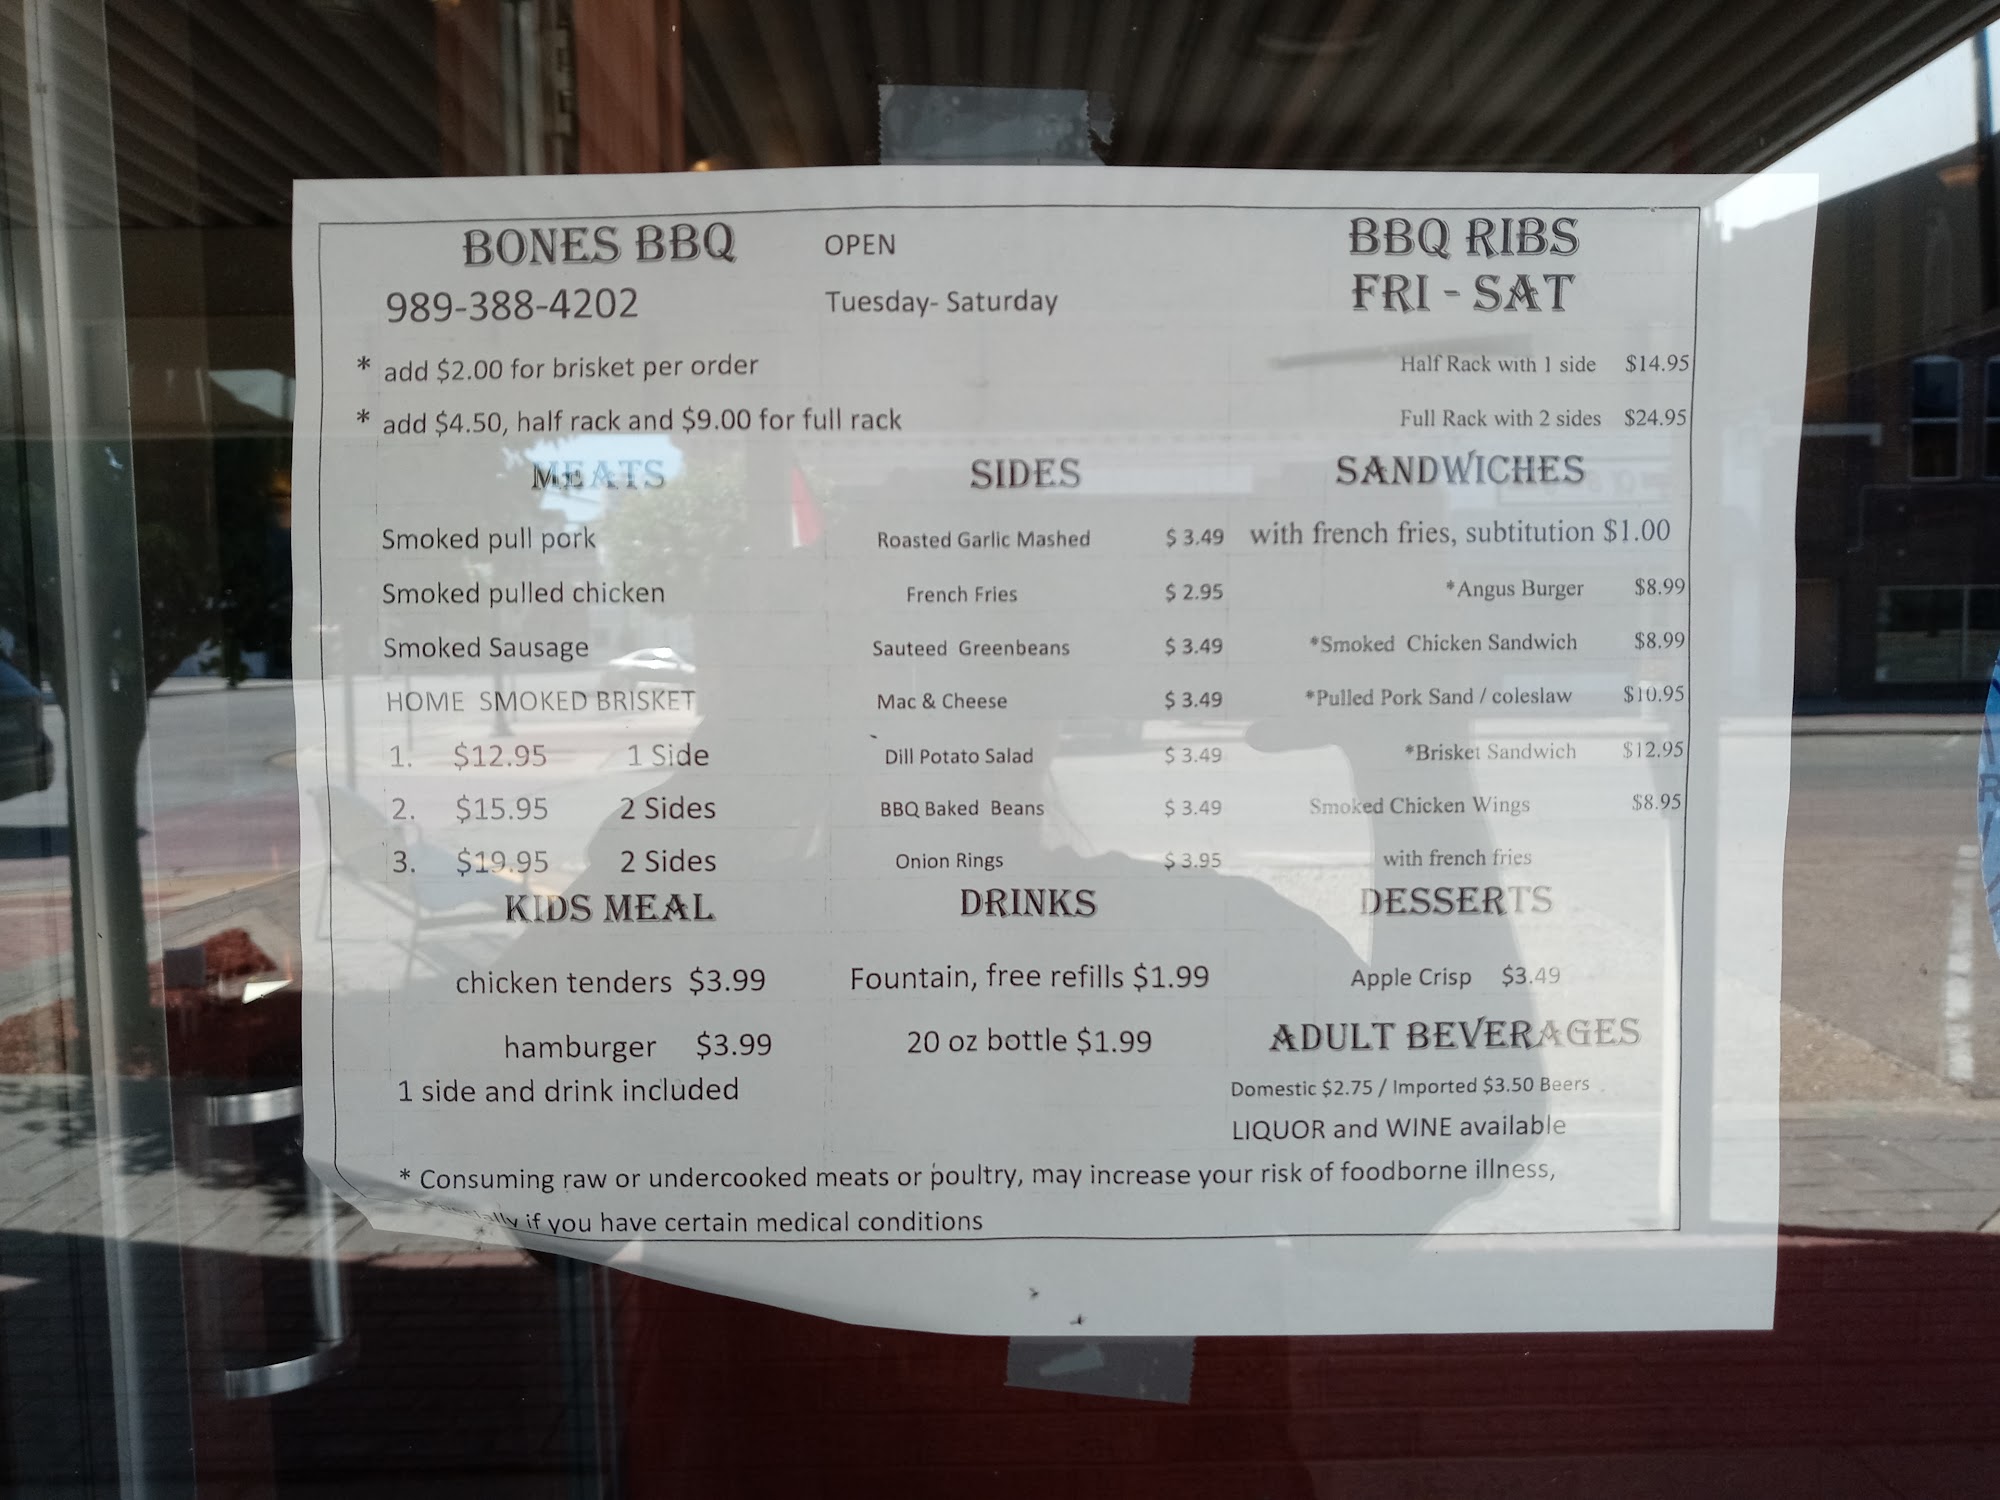 BONES BBQ
OPEN
989-388-4202
Tuesday- Saturday
BBQ RIBS
FRI - SAT
* add $2.00 for brisket per order
* add $4.50, half rack and $9.00 for full rack
Half Rack with 1 side $14.95
Full Rack with 2 sides $24.95
MEATS
Smoked pull pork
Smoked pulled chicken
Smoked Sausage
HOME SMOKED BRISKET
1. $12.95 1 Side
2. $15.95 2 Sides
3. $19.95 2 Sides
SIDES
Roasted Garlic Mashed $ 3.49
French Fries $ 2.95
Sauteed Greenbeans $ 3.49
Mac & Cheese $ 3.49
Dill Potato Salad $ 3.49
BBQ Baked Beans $ 3.49
Onion Rings $ 3.95
SANDWICHES
with french fries, subtitution $1.00
*Angus Burger $8.99
*Smoked Chicken Sandwich $8.99
*Pulled Pork Sand / coleslaw $10.95
*Brisket Sandwich $12.95
Smoked Chicken Wings $8.95
with french fries
KIDS MEAL
chicken tenders $3.99
hamburger $3.99
1 side and drink included
DRINKS
Fountain, free refills $1.99
20 oz bottle $1.99
DESSERTS
Apple Crisp $3.49
ADULT BEVERAGES
Domestic $2.75 / Imported $3.50 Beers
LIQUOR and WINE available
* Consuming raw or undercooked meats or poultry, may increase your risk of foodborne illness,
if you have certain medical conditions